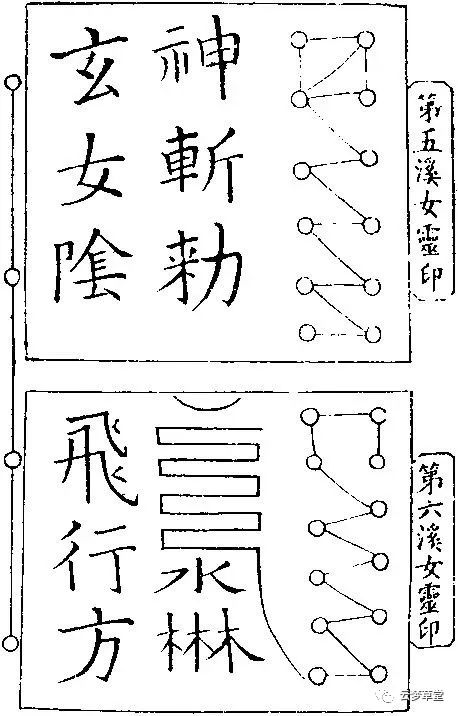 第五溪女靈印
神斬勅
玄女陰
第六溪女靈印
水
飛行方
云梦草堂